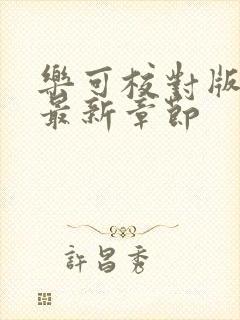 樂可校對版
最新章節
許昌秀